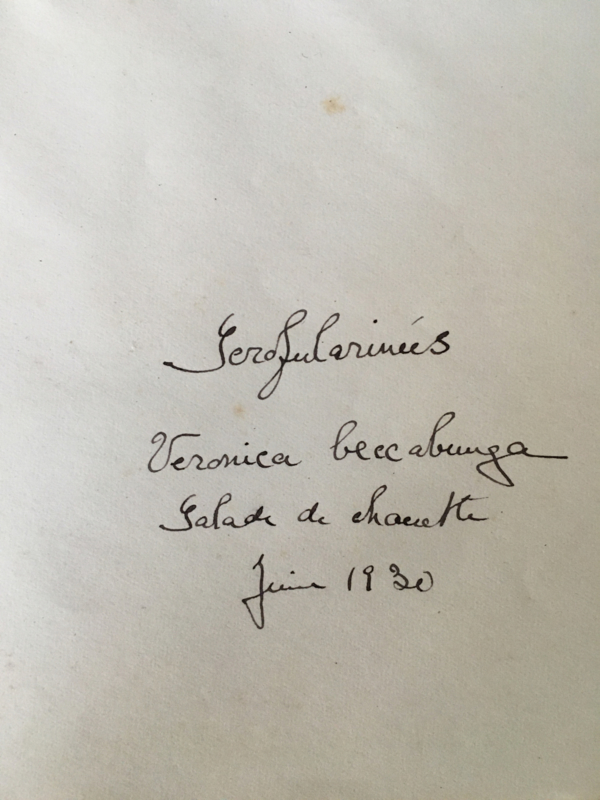 Scrofularinées
Veronica beccabunga
Salade de chouette
Juin 1930